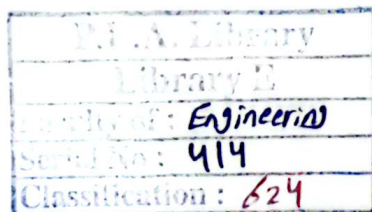 P.U.A. Library
Library E
Faculty of : Engineering
Serial No : 414
Classification : 624